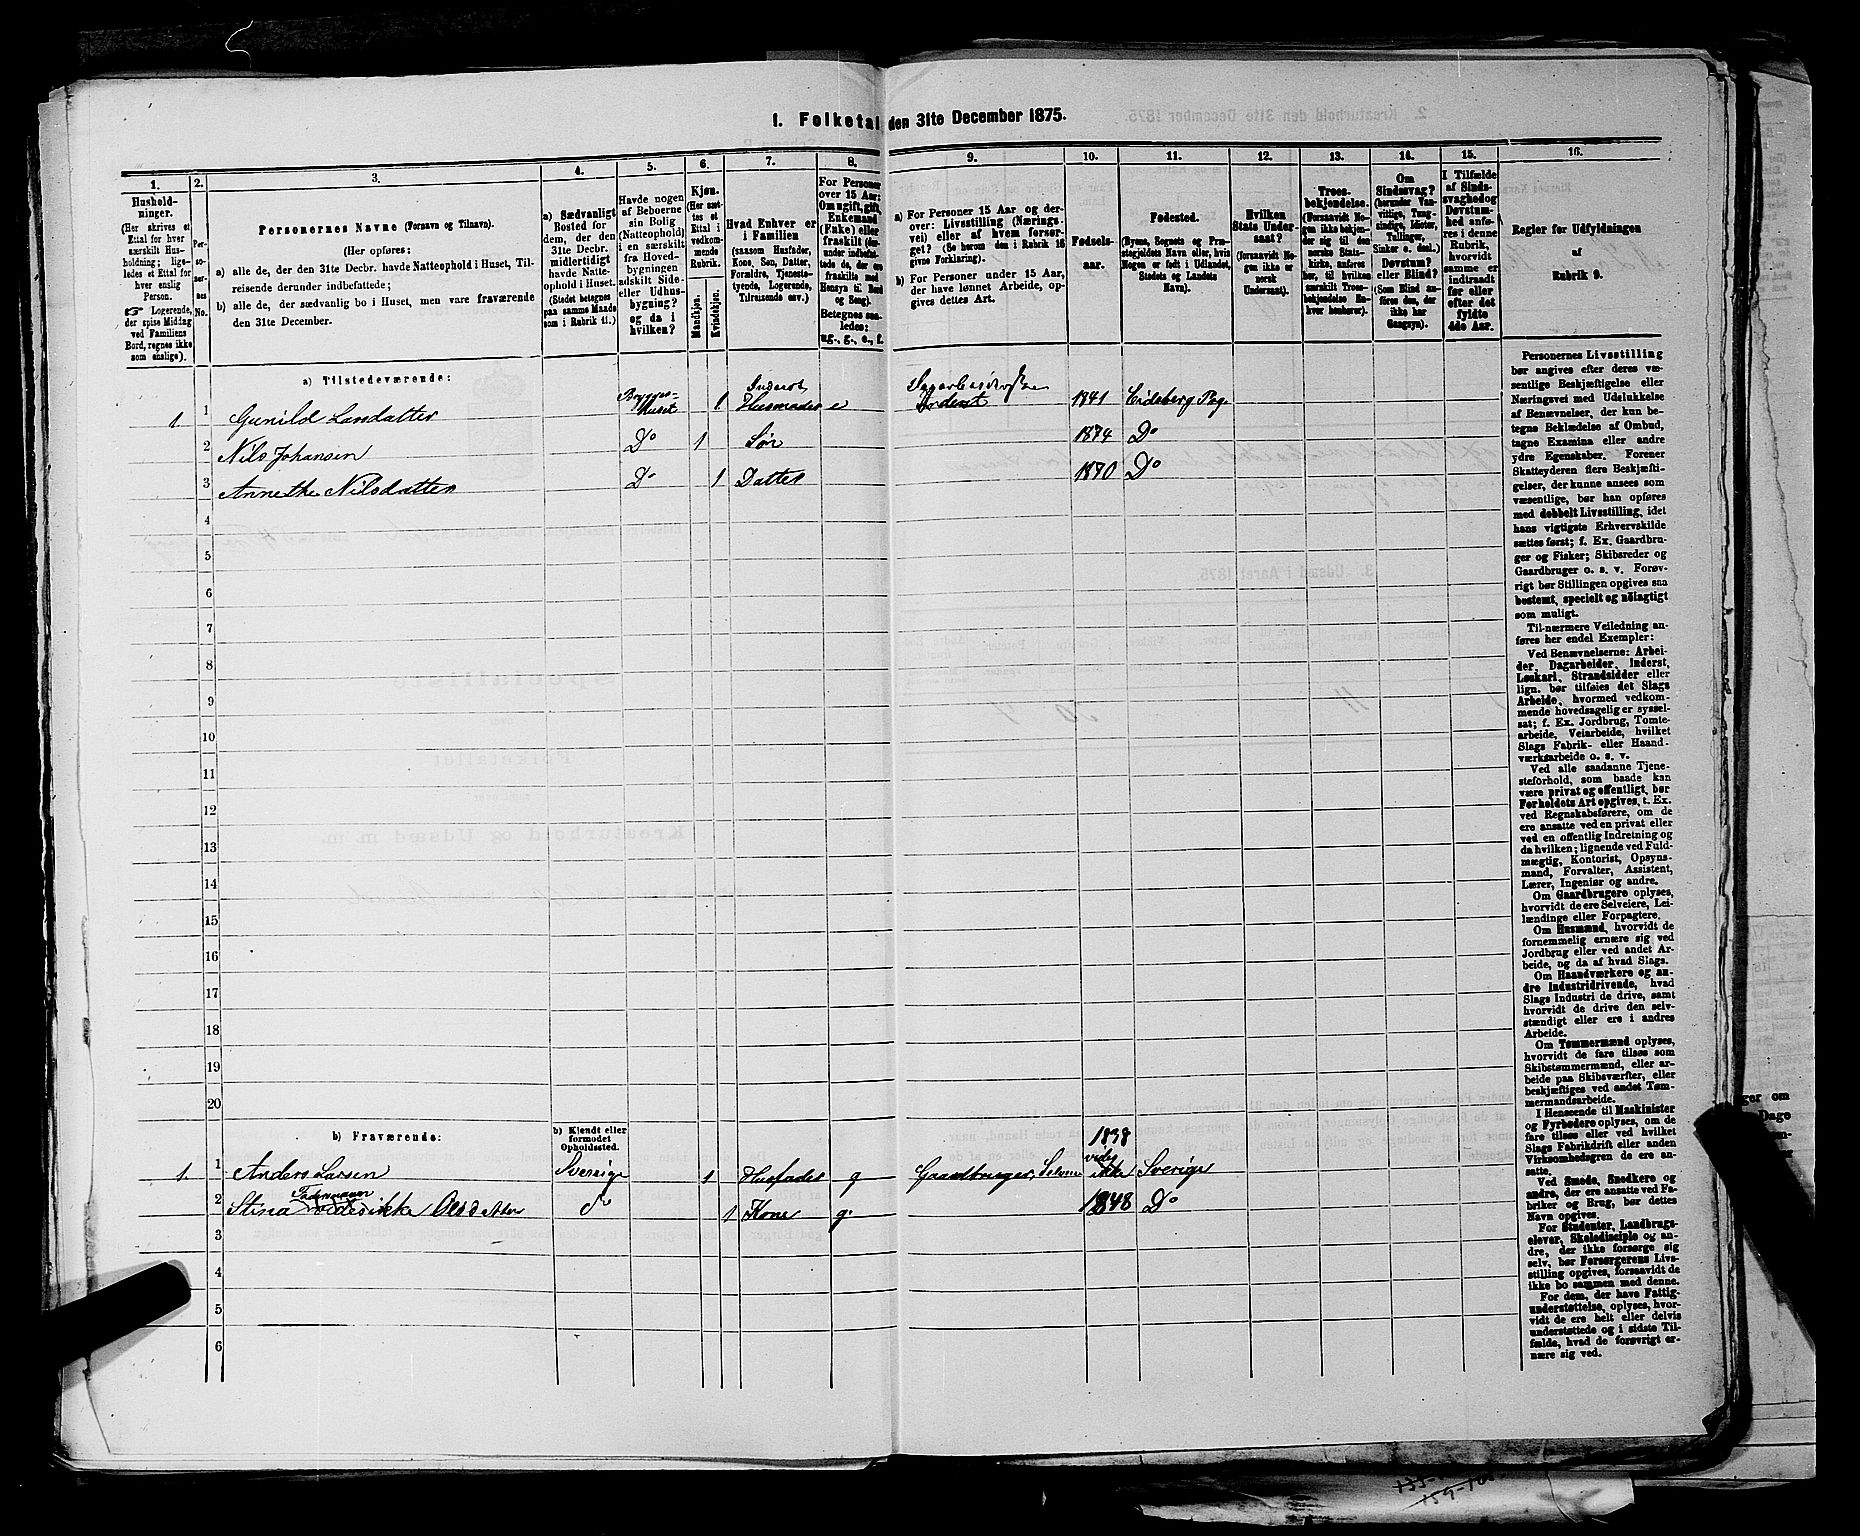 1. Folketal den 31te December 1875.
1. 2. 3. 4. 5. 6. 7. 8. 9. 10. 11. 12. 13. 14. 15. 16.
Husholdninger.
(Her skrives et
Ettal for hver
særskilt Husholdning;
ligeledes et Ettal for
hver enslig
Person.
☞ Logerende,
der spise Middag
ved Familiens
Bord, regnes ikke
som enslige).
Personernes No.
Personernes Navne (Fornavn og Tilnavn).
(Her opføres:
a) alle de, der den 31te Decbr. havde Natteophold i Huset, Tilreisende
derunder indbefattede;
b) alle de, der sædvanlig bo i Huset, men vare fraværende
den 31te December.
a) Sædvanligt
Bosted for
dem, der den
31te Decbr.
midlertidigt
havde Natteophold
i Huset.
(Stedet betegnes
paa samme Maade
som i Rubrik 11.)
Havde nogen
af Beboerne
sin Bolig
(Natteophold)
i en særskilt
fra Hovedbygningen
adskilt Sideeller
Udhusbygning?
og da i
hvilken?
Kjøn.
(Her sættes
et
Ettal i
vedkommende
Rubrik.
Mandkjøn.
Kvindekjøn.
Hvad Enhver er
i Familien
(saasom Husfader,
Kone, Søn, Datter,
Forældre, Tjenestetyende,
Logerende,
Tilreisende osv.)
For Personer
over 15 Aar:
Om ugift, gift,
Enkemand
(Enke) eller
fraskilt (derunder
indbefattede
de, der ere
fraskilte med
Hensyn til Bord
og Seng).
Betegnes saaledes:
ug., g., e., f.
a) For Personer 15 Aar og derover:
Livsstilling (Næringsvei)
eller af hvem forsørget?
(Se herom den i Rubrik 16
givne Forklaring).
b) For Personer under 15 Aar,
der have lønnet Arbeide, opgives
dettes Art.
Fødselsaar.
Fødested.
(Byens, Sognets og Præstegjeldets
Navn eller, hvis
Nogen er født i Udlandet,
Stedets og Landets
Navn).
Hvilken
Stats Undersaat?
(forsaavidt Nogen
ikke er
norsk
Undersaat).
Troesbekjendelse.
(Forsaavidt Nogen
ikke bekjender
sig til den
norske Statskirke,
anføres
her, til hvilken
særskilt Troesbekjendelse
Enhver
henhører).
Om
Sindssvag?
(herunder Vanvittige,
Tungsindige,
Idioter,
Tullinger,
Sinker o. desl.)
Døvstum?
eller Blind?
(Som Blind anføres
den, der
ikke har
Gangsyn).
I Tilfælde
af Sindssvaghed
og
Døvstumhed
anføres
i denne
Rubrik,
hvorvidt
samme er
indtraadt
før eller
efter det
fyldte
4de Aar.
Regler for Udfyldningen
af
Rubrik 9.
a) Tilstedeværende:
1. 1 Gunild Larsdatter Bygnings-Huset 1 Inderst Husmoder e Inderst 1841 Eidsberg Pag.
2 Nils Johansen Do 1 Søn 1874 Do
3 Annethe Nilsdatter Do 1 Datter 1870 Do
4
5
6
7
8
9
10
11
12
13
14
15
16
17
18
19
20
b) Fraværende:
b) Kjendt eller
formodet
Opholdssted.
1. 1 Anders Larsen Sverige 1 Husfader g Gaardbruger, Selveier 1838 vides ikke Sverige
2 Stina Olsdatter Do 1 Kone g 1848 Do
3
4
5
6
Personernes Livsstilling
bør angives efter deres væsentlige
Beskjæftigelse eller
Næringsvei med Udelukkelse
af Benævnelser, der kun betegne
Beklædelse af Ombud,
tagne Examina eller andre
ydre Egenskaber. Forener
Skatteyderen flere Beskjæftigelser,
der kunne ansees som
væsentlige, bør han opføres
med dobbelt Livsstilling, idet
hans vigtigste Erhvervskilde
sættes først; f. Ex. Gaardbruger
og Fisker; Skibsreder og
Gaardbruger o. s. v. Forøvrigt
bør Stillingen opgives saa
bestemt, specielt og nøiagtigt
som muligt.
Til nærmere Veiledning anføres
her endel Exempler:
Ved Benævnelserne: Arbeider,
Dagarbeider, Inderst,
Løskarl, Strandsidder eller
lign. bør tilføies det Slags
Arbeide, hvormed vedkommende
hovedsagelig er sysselsat;
f. Ex. Jordbrug, Tomtearbeide,
Veiarbeide, hvilket
Slags Fabrik- eller Haandværksarbeide
o. s. v.
Ved alle saadanne Tjenesteforhold,
som baade kan
være privat og offentligt, bør
Forholdets Art opgives, t. Ex.
ved Regnskabsførere, om de
ere ansatte ved en privat eller
ved en offentlig Indretning og
da hvilken; lignende ved Fuldmægtig,
Kontorist, Opsynsmand,
Forvalter, Assistent,
Lærer, Ingeniør og andre.
Om Gaardbrugere oplyses,
hvorvidt de ere Selveiere, Leilændinge
eller Forpagtere.
Om Husmænd, hvorvidt de
fornemmelig ernære sig ved
Jordbrug eller ved andet Arbeide,
og da af hvad Slags.
Om Haandværkere og andre
Industridrivende, hvad
Slags Industri de drive, samt
hvorvidt de drive den selvstændigt
eller ere i andres
Arbeide.
Om Tømmermænd oplyses,
hvorvidt de fare tilsøs som
Skibstømmermænd, eller arbeide
paa Skibsværfter, eller
beskjæftiges ved andet Tømmermandsarbeide.
I Henseende til Maskinister
og Fyrbødere oplyses, om de
fare tilsøs eller ved hvilket
Slags Fabrikdrift eller anden
Virksomhedsgren de ere ansatte.
Ved Smede, Snedkere og
andre, der ere ansatte ved Fabriker
og Brug, bør dettes
Navn opgives.
For Studenter, Landbrugselever,
Skoledisciple og andre,
der ikke forsørge sig
selv, bør Forsørgerens Livsstilling
opgives, forsaavidt de
ikke bo sammen med denne.
For dem, der have Fattigunderstøttelse,
oplyses, hvorvidt
de ere helt eller delvis
understøttede og i sidste Tilfælde,
hvad de forøvrigt ernære
sig ved.